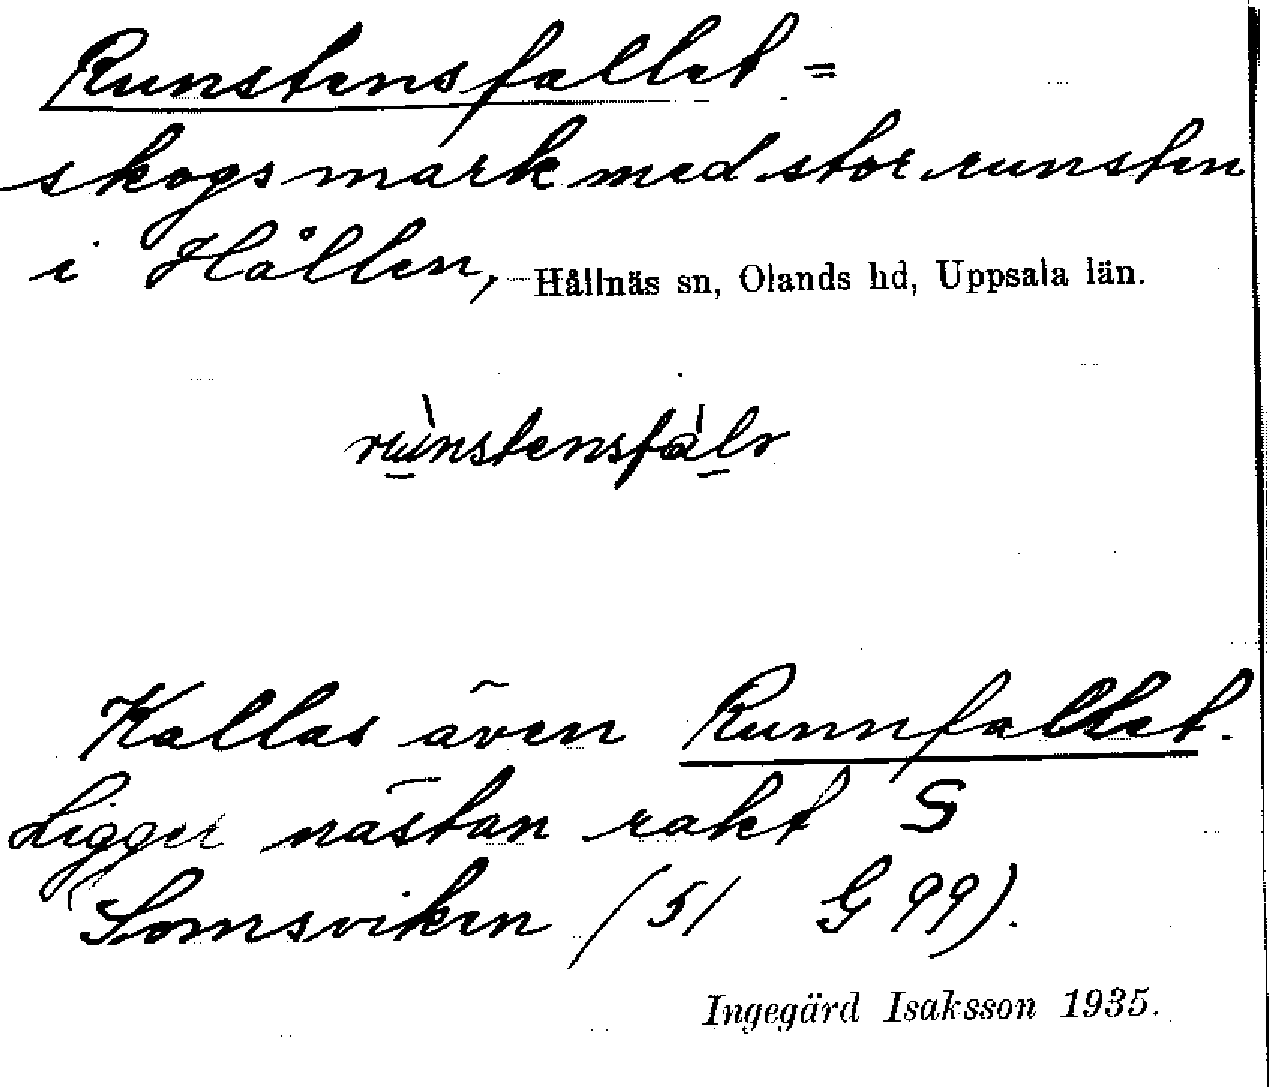 Runstensfallet =
skogsmark med stor runsten
i Hållen, Hållnäs sn, Olands hd, Uppsala län.
Kallas även Runnfallet.
Ligger nästan rakt S
Lomsviken (51 G 99).
Ingegärd Isaksson 1935.